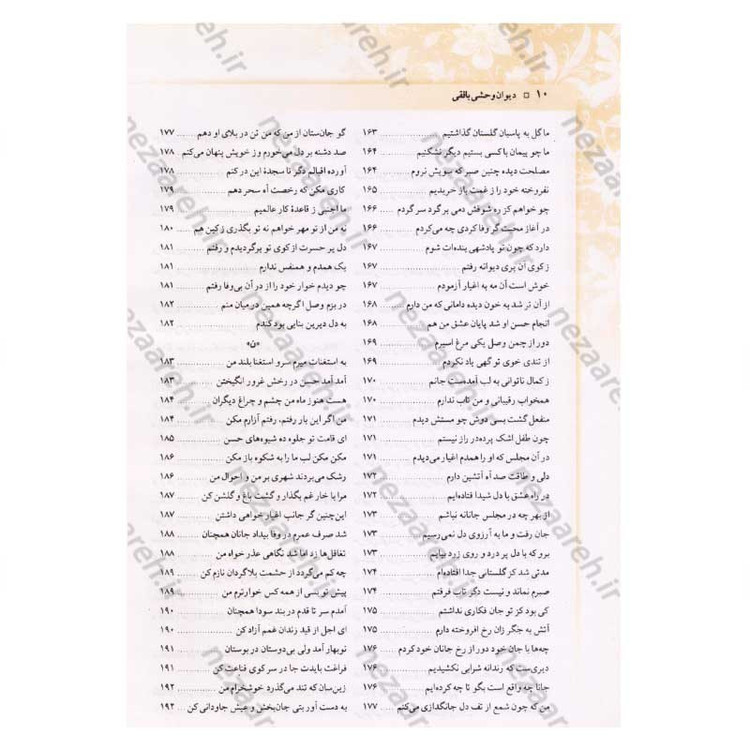 ۱۰ □ دیوان وحشی بافقی
ما گل به پاسبان گلستان گذاشتیم ۱۶۳
ما چو پیمان با کسی بستیم دیگر نشکنیم ۱۶۴
مصلحت دیده چنین صبر که سویش نروم ۱۶۴
نفروخته خود را ز غمت باز خریدیم ۱۶۵
چو خواهم کز ره شوقش دمی بر گرد سر گردم ۱۶۶
در آغاز محبت گر وفا کردی چه می‌کردم ۱۶۶
دارد که چون تو پادشهی بنده‌ات شوم ۱۶۷
ز کوی آن پری دیوانه رفتم ۱۶۷
خوش است آن مه به اغیار آزمودم ۱۶۷
از آن تر شد به خون دیده دامانی که من دارم ۱۶۸
انجام حسن او شد پایان عشق من هم ۱۶۸
دور از چمن وصل یکی مرغ اسیرم ۱۶۹
از تندی خوی تو گهی یاد نکردم ۱۶۹
ز کمال ناتوانی به لب آمده‌ست جانم ۱۷۰
همخواب رقیبانی و من تاب ندارم ۱۷۰
منفعل گشت بسی دوش چو مستش دیدم ۱۷۱
چون طفل اشک پرده‌در راز نیستم ۱۷۱
در آن مجلس که او را همدم اغیار می‌دیدم ۱۷۱
دلی و طاقت صد آه آتشین دارم ۱۷۲
در راه عشق با دل شیدا فتاده‌ایم ۱۷۲
از بهر چه در مجلس جانانه نباشم ۱۷۳
جان رفت و ما به آرزوی دل نمی‌رسیم ۱۷۳
برو که با دل پر درد و روی زرد بیایم ۱۷۳
مدتی شد کز گلستانی جدا افتاده‌ام ۱۷۴
صبرم نماند و نیست دگر تاب فرقتم ۱۷۴
کی بود کز تو جان فکاری نداشتم ۱۷۵
آتش به جگر زان رخ افروخته دارم ۱۷۵
چه‌ها با جان خود دور از رخ جانان خود کردم ۱۷۶
دیری‌ست که رندانه شرابی نکشیدیم ۱۷۶
جانا چه واقع است بگو تا چه کرده‌ایم ۱۷۶
من که چون شمع از تف دل جانگدازی می‌کنم ۱۷۷
گو جان‌ستان از من که من تن در بلای او دهم ۱۷۷
صد دشنه بر دل می‌خورم وز خویش پنهان می‌کنم ۱۷۸
آورده اقبالم دگر تا سجدهٔ این در کنم ۱۷۸
کاری مکن که رخصت آه سحر دهم ۱۷۹
ما اجنبی ز قاعدهٔ کار عالمیم ۱۷۹
نه من از تو مهر خواهم نه تو بگذری ز کین هم ۱۸۰
دل پر حسرت از کوی تو برگردیدم و رفتم ۱۸۱
یک همدم و همنفس ندارم ۱۸۱
چو دیدم خوار خود را از در آن بی‌وفا رفتم ۱۸۱
در بزم وصل اگرچه همین در میان منم ۱۸۲
به دل دیرین بنایی بود کندم ۱۸۲
«ن»
به استغنات میرم سرو استغنا بلند من ۱۸۳
آمد آمد حسن در رخش غرور انگیختن ۱۸۳
هست هنوز ماه من چشم و چراغ دیگران ۱۸۴
من اگر این بار رفتم، رفتم آزارم مکن ۱۸۴
ای قامت تو جلوه ده شیوه‌های حسن ۱۸۵
مکن مکن لب ما را به شکوه باز مکن ۱۸۶
رشک می‌بردند شهری بر من و احوال من ۱۸۶
مرا با خار غم بگذار و گشت باغ و گلشن کن ۱۸۷
این‌چنین گر جانب اغیار خواهی داشتن ۱۸۷
شد صرف عمرم در وفا بیداد جانان همچنان ۱۸۸
تغافل‌ها زد اما شد نگاهی عذر خواه من ۱۸۸
چه کم می‌گردد از حشمت بلاگردان نازم کن ۱۸۹
پیش تو بسی از همه کس خوارترم من ۱۸۹
آمدم سر تا قدم در بند سودا همچنان ۱۹۰
ای اجل از قید زندان غمم آزاد کن ۱۹۰
نوبهار آمد ولی بی‌دوستان در بوستان ۱۹۱
فراغت بایدت جا در سر کوی قناعت کن ۱۹۱
زین‌سان که تند می‌گذرد خوشخرام من ۱۹۲
به دست آور بتی جان‌بخش و عیش جاودانی کن ۱۹۲
nezaareh.ir